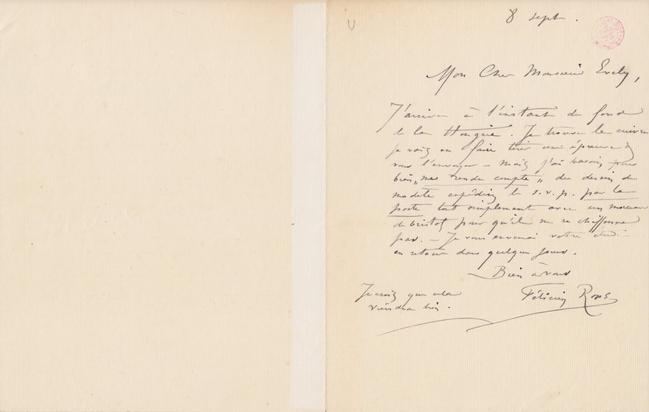 8 sept.
Mon Cher Monsieur Evely,
J'arrive à l'instant du fond
de la Hongrie. Je trouve le cuivre
je vais en faire tirer une épreuve &
vous l'envoyer – Mais j'ai besoin pour
bien "me rendre compte" du dessin de
modèle expédiez le s.v.p. par la
poste tout simplement avec un morceau
de bristol pour qu'il ne se chiffonne
pas. – Je vous enverrai votre
en retour dans quelques jours.
Bien à vous
Félicien Rops
Je crois que cela
viendra bien.